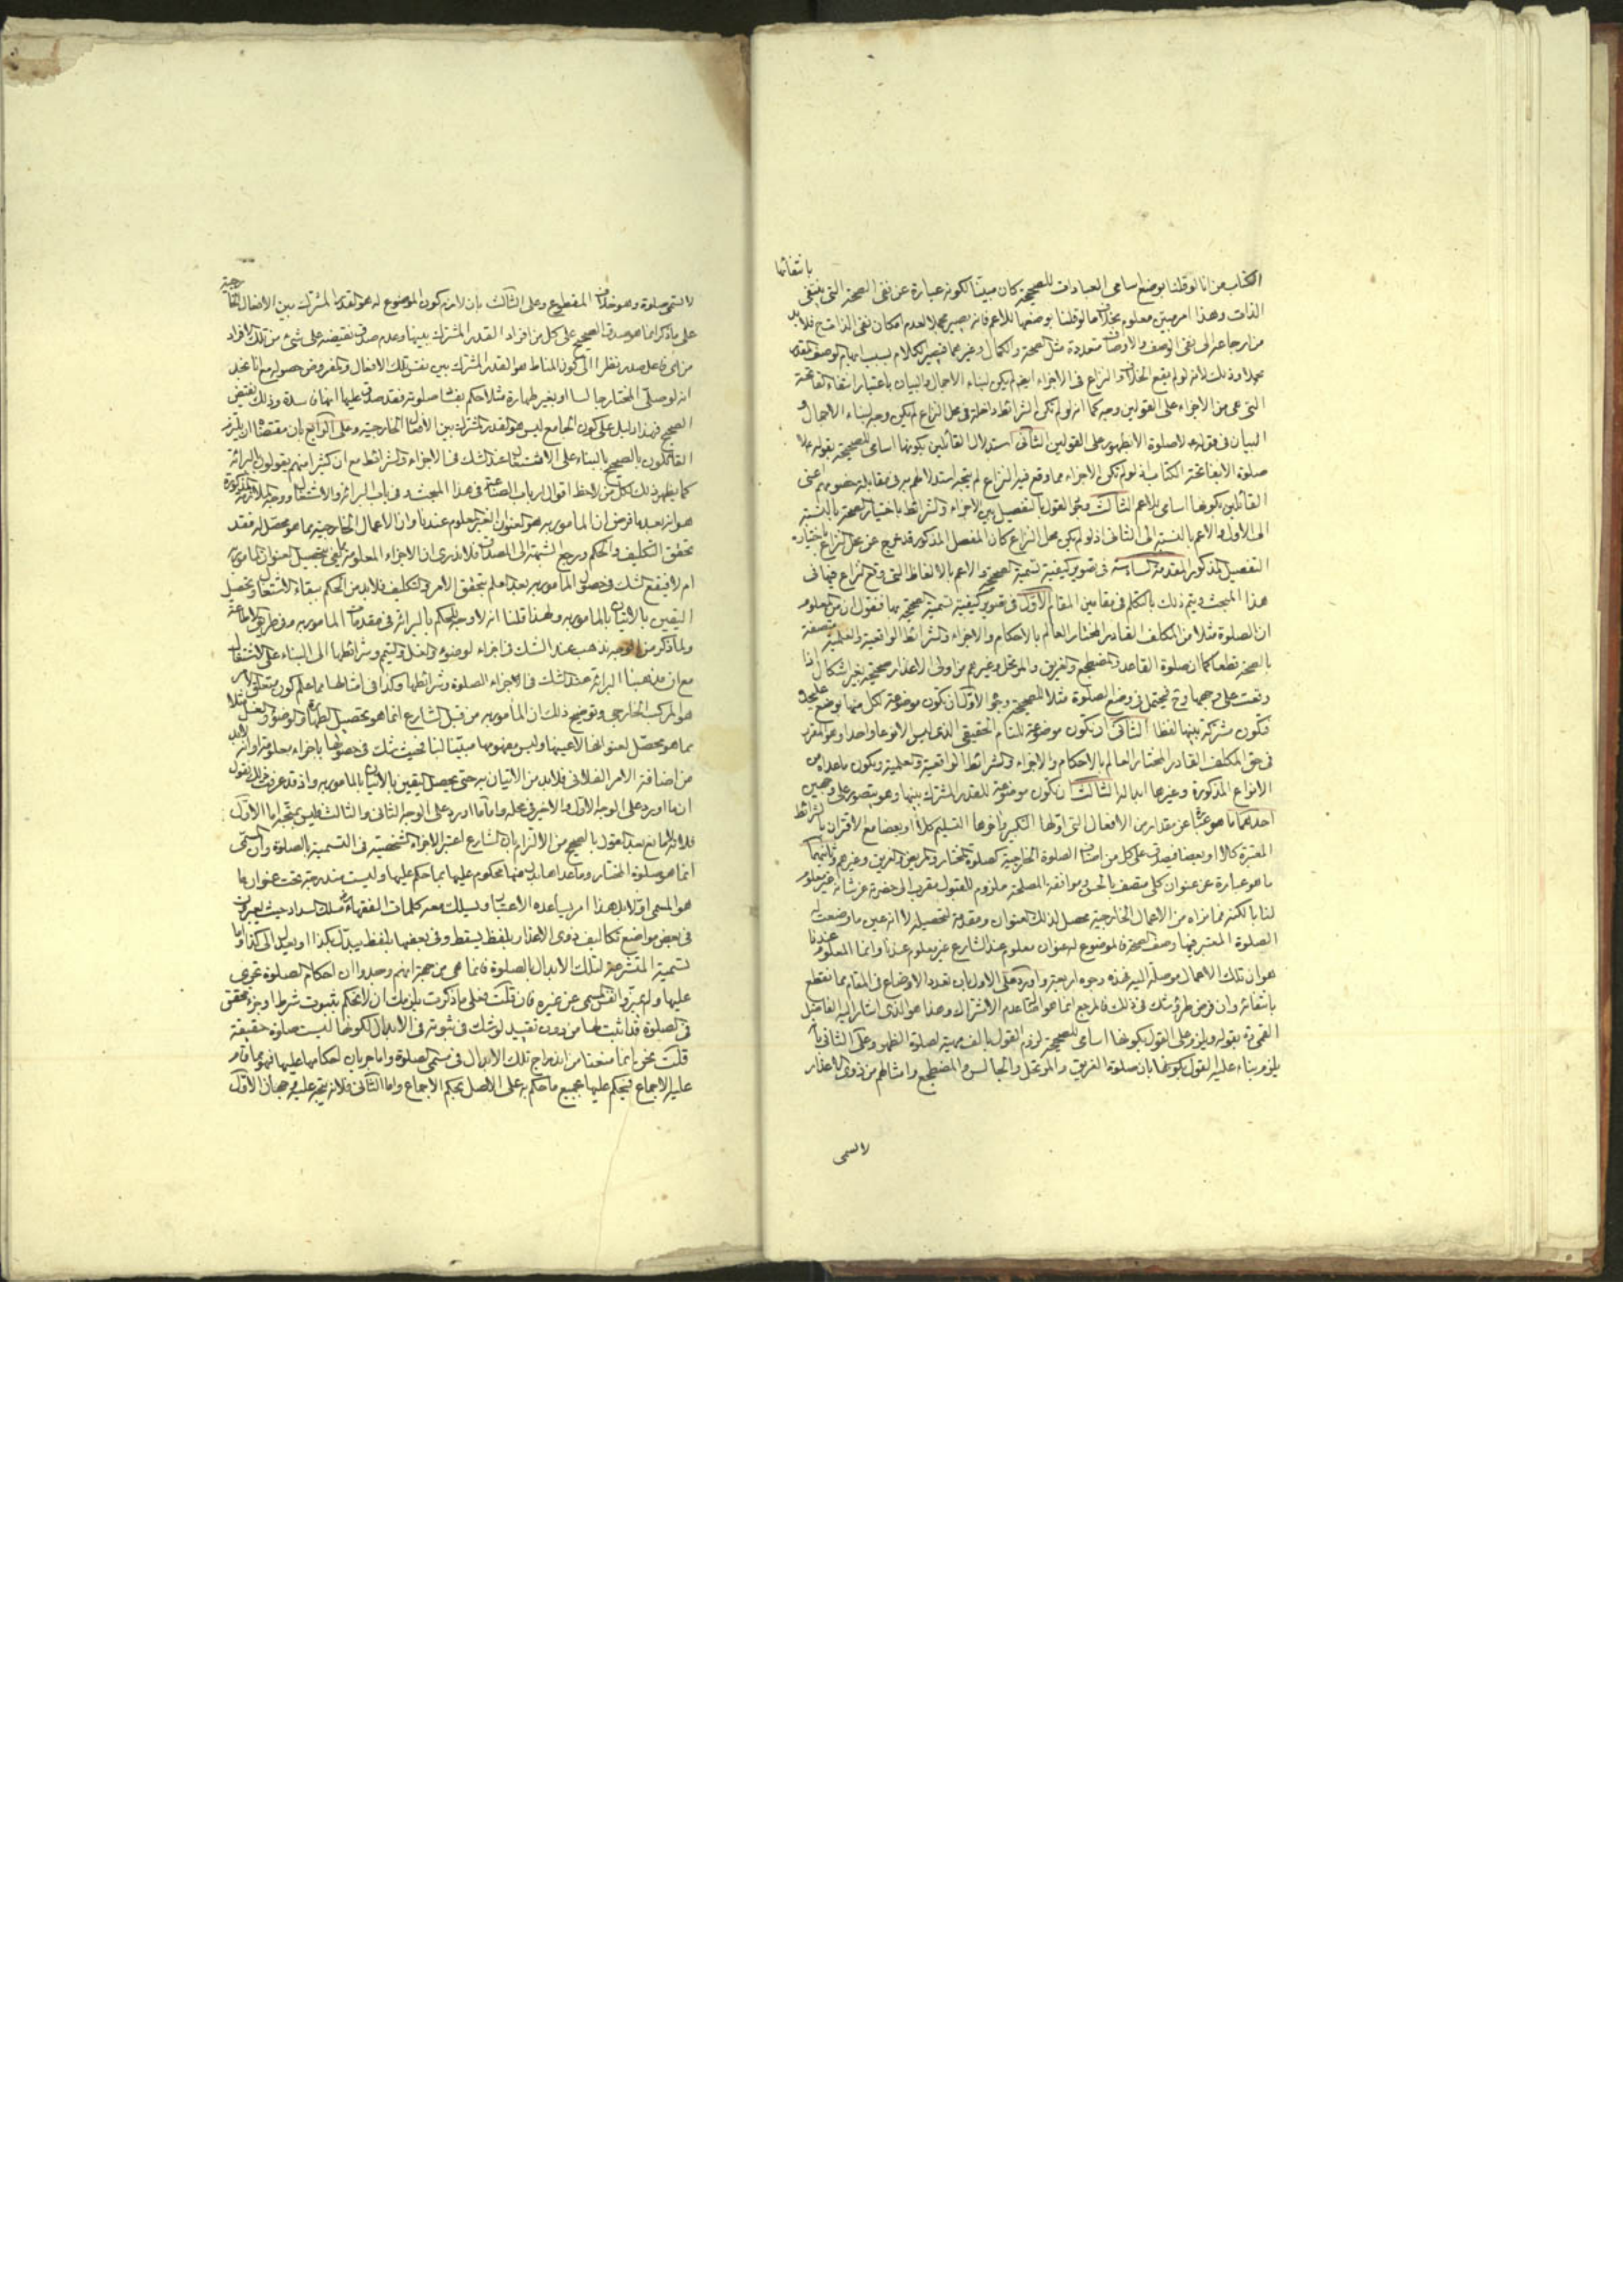 الكتاب من انا لو قلنا بوضع اسامى العبادات للصحيحة كان مبيّنا لكونه عبارة عن نفى الصحة التى ينتفى بانتفائها
الذات وهذا امر مبيّن معلوم بخلاف ما لو قلنا بوضعها للاعم فانه يصير مجملا لعدم امكان نفى الذات ح فلا بد
من ارجاعه الى نفى الوصف والاوصاف متعددة مثل الصحة والكمال وغيرهما فيصير الكلام بسبب ابهام الوصف المقدر
مجملا وذلك لانه لو لم يقع الخلاف والنزاع فى الاجزاء ايضا لم يكن لبناء الاجمال والبيان باعتبار انتفاء الفاتحة
التى هى من الاجزاء على القولين وجه كما انه لو لم تكن الشرائط داخلة فى محل النزاع لم يكن وجه لبناء الاجمال و
البيان فى قوله لا صلوة الا بطهور على القولين الثانى استدلال القائلين بكونها اسامى للصحيحة بقوله لا
صلوة الا بفاتحة الكتاب اذ لو لم تكن الاجزاء مما وقع فيه النزاع لم يتجه استدلالهم به فى مقابلة خصومهم اعنى
القائلين بكونها اسامى للاعم الثالث وجود القول بالتفصيل بين الاجزاء والشرائط باختيار الصحة بالنسبة
الى الاول والاعم بالنسبة الى الثانى اذ لو لم يكن محل النزاع كان المفصل المذكور قد خرج عن محل النزاع باختياره
التفصيل المذكور المقدمة السادسة فى تصوير كيفية تسمية الصحيح والاعم بالالفاظ التى وقع النزاع فيها فى
هذا المبحث ويتم ذلك بالتكلم فى مقامين المقام الاول فى تصوير كيفية تسمية الصحيحة بها فنقول ان من المعلوم
ان الصلوة مثلا من المكلف القادر المختار العالم بالاحكام والاجزاء والشرائط الواقعية والعلمية متصفة
بالصحة قطعا كما ان صلوة القاعد والمضطجع والغريق والموتحل وغيرهم من اولى الاعذار صحيحة بغير اشكال اذا
وقعت على وجهها وح فيحتمل فى وضع الصلوة مثلا للصحيحة وجوه الاول ان تكون موضوعة لكل منها بوضع عليحدة
فتكون مشتركة بينها لفظا الثانى ان تكون موضوعة للتام الحقيقى الذى ليس الا نوعا واحدا وهو المقرر
فى حق المكلف القادر المختار العالم بالاحكام والاجزاء والشرائط الواقعية والعلمية ويكون ما عداه من
الانواع المذكورة وغيرها ابدالا الثالث ان تكون موضوعة للقدر المشترك بينها وهو يتصور على وجهين
احدهما ما هو عبارة عن مقدار من الافعال التى اولها التكبير واخرها التسليم كلا او بعضا مع الاقتران بالشرائط
المعتبرة كلا او بعضا فيصدق على كل من اصناف الصلوة الخارجية كصلوة المختار والمريض والغريق وغيرهم وثانيهما
ما هو عبارة عن عنوان كلى متصف بالحسن وموافقة المصلحة ملزوم للقبول مقرب الى حضرة عز شانه غير معلوم
لنا بالكنه فما نراه من الاعمال الخارجية محصل لذلك العنوان ومقدمة لتحصيله لا انه عين ما وضعت له
الصلوة المعتبر فيها وصف الصحة فالموضوع له عنوان معلوم عند الشارع غير معلوم عندنا وانما المعلوم عندنا
هو ان تلك الاعمال موصلة اليه فهذه وجوه اربعة واورد على الاول بان تعدد الاوضاع فى المقام مما نقطع
بانتفائه وان فرض طرو شك فى ذلك فالمرجع انما هو اصالة عدم الاشتراك وهذا هو الذى اشار اليه الفاضل
القمى ره بقوله ويلزم على القول بكونها اسامى للصحيحة لزوم القول بالف مهية لصلوة الظهر وعلى الثانى بانه
يلزم بناء عليه القول بكونها بان صلوة الغريق والموتحل والجالس والمضطجع وامثالهم من ذوى الاعذار
لا تسمى
لا تسمى صلوة وهو خلاف المقطوع وعلى الثالث بان لازم كون الموضوع له هو القدر المشترك بين الافعال الخارجية
على ما ذكر انما هو صدق الصحيح على كل من افراد القدر المشترك بينها وعدم صدق نقيضه على شىء من تلك الافراد
من اى فاعل صدر نظرا الى كون المناط هو القدر المشترك بين نفس تلك الافعال والمفروض حصوله مع انا نجد
انه لو صلى المختار جالسا او بغير طهارة مثلا حكم بفساد صلوته فقد صدق عليها انها فاسدة وذلك نقيض
الصحيح فهذا دليل على كون الجامع ليس هو القدر المشترك بين الافعال الخارجية وعلى الرابع بان مقتضاه ان يلتزم
القائلون بالصحيح بالبناء على الاشتغال عند الشك فى الاجزاء والشرائط مع ان كثيرا منهم يقولون بالبرائة
كما يظهر ذلك لكل من لاحظ اقوال ارباب الصناعة فى هذا المبحث وفى باب البرائة والاشتغال ووجه الملازمة المذكورة
هو انه بعد ما فرض ان المامور به هو العنوان الغير المعلوم عندنا وان الاعمال الخارجية مما هو محصل له فقد
تحقق التكليف والحكم ورجع الشبهة الى المصداق فلا ندرى ان الاجزاء المعلومة يكفى بتحصيل العنوان المامور به
ام لا فيقع الشك فى حصول المامور به بعد العلم بتحقق الامر والتكليف فلا بد من الحكم ببقاء الاشتغال وتحصيل
اليقين بالاتيان بالمامور به ولهذا قلنا انه لا وجه للحكم بالبرائة فى مقدمات المامور به وفى طريق الاطاعة
ولما ذكر من الوجه نذهب عند الشك فى اجزاء الوضوء والغسل والتيمم وشرائطها الى البناء على الاشتغال
مع ان مذهبنا البرائة عند الشك فى الاجزاء الصلوة وشرائطها وكذا فى امثالها مما علم كون متعلق الامر
هو المركب الخارجى وتوضيح ذلك ان المأمور به من قبل الشارع انما هو تحصيل الطهارة والوضوء والغسل مثلا
مما هو محصل لعنوانها لا عينها وليس مفهومها مبيّنا لنا فحيث نشك فى حصولها باجزاء معلومة وانه لا بد
من اضافة الامر الفلانى فلا بد من الاتيان به حتى يحصل اليقين بالاتيان بالمامور به واذ قد عرفت ذلك نقول
ان ما اورد على الوجه الاول والاخير فى محله واما ما اورد على الوجه الثانى والثالث فليس بمتجه اما الاول
فلانه لا مانع بعد القول بالصحيح من الالتزام بان الشارع اعتبر الاجزاء الشخصية فى التسمية بالصلوة وان المسمى
انما هو صلوة المختار وما عداها بدل عنها محكوم عليها بما حكم عليها وليست مندرجة تحت عنوان ما
هو المسمى اولا بل هذا امر يساعده الاعتبار ويسلك معه كلمات الفقهاء مسلك السداد حيث يعبرون
فى بعض مواضع تكاليف ذوى الاعذار بلفظ يسقط وفى بعضها بلفظ يبدل بكذا او يعدل الى كذا واما
تسمية المتشرعة لتلك الابدال بالصلوة فانما هى من جهة انهم وجدوا ان احكام الصلوة تجرى
عليها ولم يميزوا نفس المسمى عن غيره فان قلت فعلى ما ذكرت يلزمك ان لا تحكم بثبوت شرط او جزء تحقق
فى الصلوة قد اثبت لها من دون تقييد لو شك فى ثبوته فى الابدال لكونها ليست صلوة حقيقة
قلت نحن انما منعنا من اندراج تلك الابدال فى مسمى الصلوة واما جريان احكامها عليها فهو مما قام
عليه الاجماع فيحكم عليها بجميع ما حكم به على الاصل بحكم الاجماع واما الثانى فلانه يتجه عليه وجهان الاول